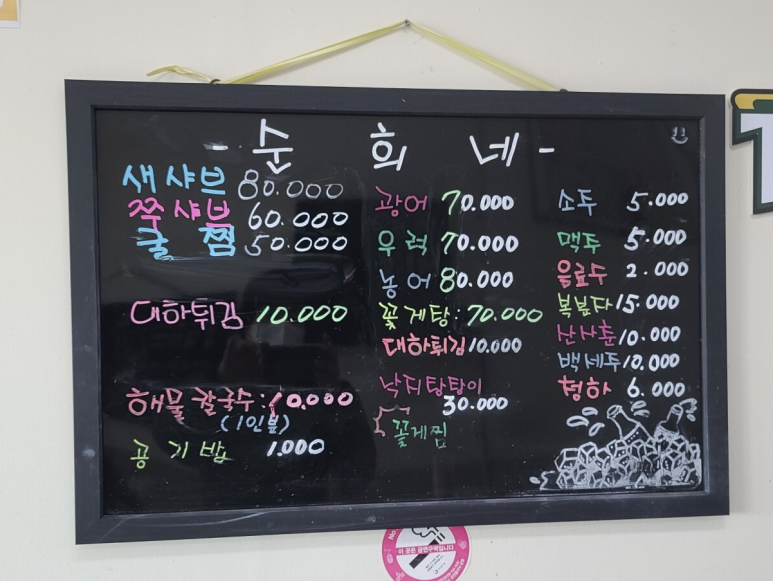 - 순 희 네 -
새샤브 80.000
쭉샤브 60.000
굴 찜 50.000
대하튀김 10.000
해물칼국수: 10.000
(1인분)
공기밥 1.000
광어 70.000
우럭 70.000
농어 80.000
꽃게탕: 70.000
대하튀김 10.000
낙지탕탕이
30.000
꽃게찜
소주 5.000
맥주 5.000
음료수 2.000
복분자 15.000
산사춘 10.000
백세주 10.000
청하 6.000
이 곳은 금연구역입니다